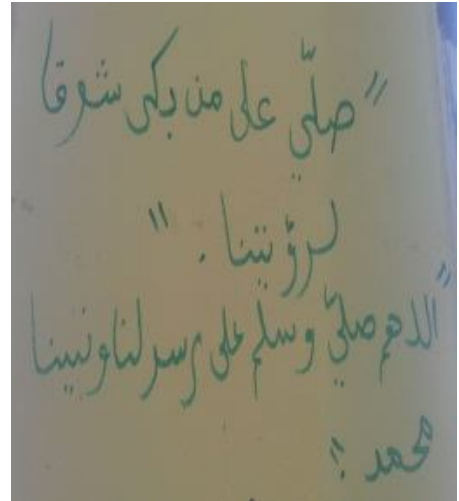 "صلّي على من بكى شوقا
لرؤيتنا."
"اللهم صلّي وسلّم على رسولنا ونبينا
محمد."